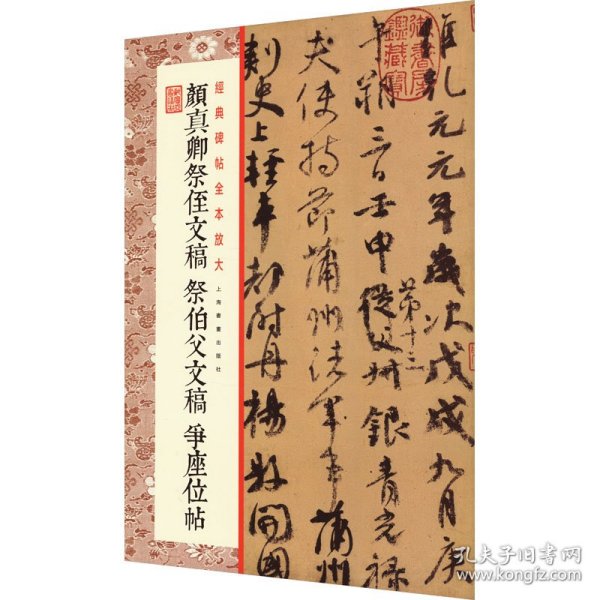 經典碑帖全本放大
顏真卿祭侄文稿 祭伯父文稿 爭座位帖
上海書畫出版社
維乾元元年歲次戊戌九月庚
午朔三日壬申從父
第十三
姪銀青光祿
夫使持節蒲州諸軍事蒲州
刺史上輕車都尉丹楊縣開國
孔夫子旧书网
www.kongfz.com